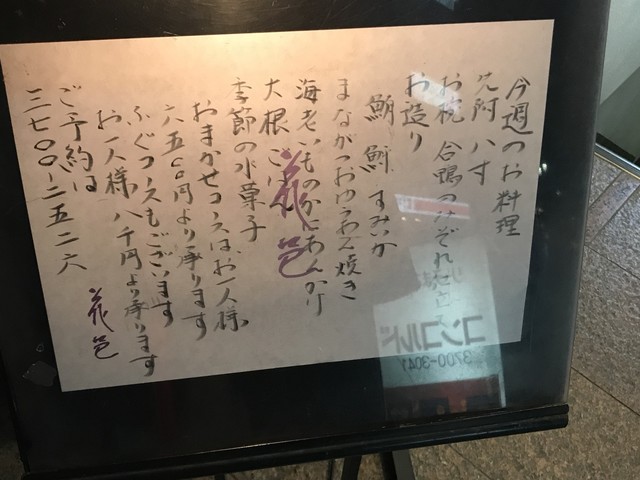 今週のお料理
先附 ハす
お椀 合鴨のみぞれ
お造り
鮪 鮃 すみいか
まながつおゆうあん焼き
海老いものかにあんかけ
大根ごはん
季節の水菓子
花邑
おまかせコースは、お一人様
六五〇〇円より承ります
ふぐコースもございます
お一人様八千円より承ります
ご予約は
三七〇〇-二五二六
花邑
コンコルド
3700-3041